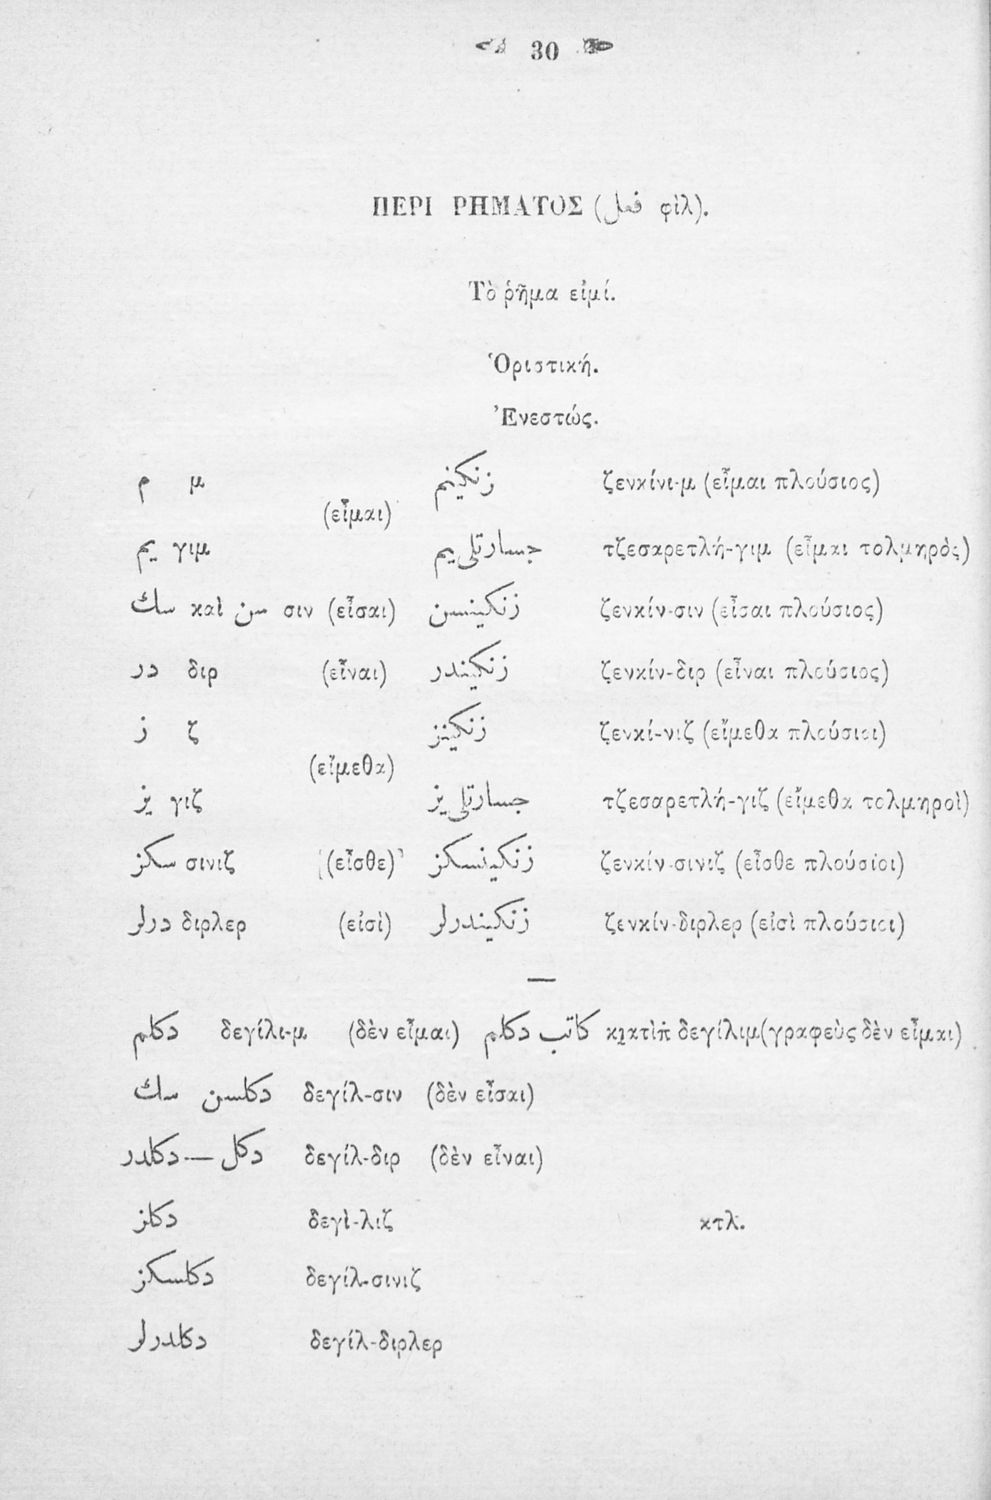 30
ΠΕΡΙ ΡΗΜΑΤΟΣ (فعل φὶλ).
Τὸ ῥῆμα εἰμί.
Ὁριστική.
Ἐνεστώς.
م μ زنكينم ζενκίνι-μ (εἶμαι πλούσιος)
(εἶμαι)
يم γιμ جسارتلى يم τζεσαρετλή-γιμ (εἶμαι τολμηρός)
سك καὶ سن σιν (εἶσαι) زنكينسن ζενκίν-σιν (εἶσαι πλούσιος)
در διρ (εἶναι) زنكيندر ζενκίν-διρ (εἶναι πλούσιος)
ز ζ زنكينز ζενκί-νιζ (εἴμεθα πλούσιοι)
(εἴμεθα)
يز γιζ جسارتلى يز τζεσαρετλή-γιζ (εἴμεθα τολμηροὶ)
سكز σινιζ (εἶσθε) زنكينسكز ζενκίν-σινιζ (εἶσθε πλούσιοι)
درلر διρλερ (εἰσὶ) زنكيندرلر ζενκίν-διρλερ (εἰσὶ πλούσιοι)
دكلم δεγίλι-μ (δὲν εἶμαι) كاتب دكلم κιατὶπ δεγίλιμ (γραφεὺς δὲν εἶμαι)
دكلسن سك δεγίλ-σιν (δὲν εἶσαι)
دكل — دكلدر δεγίλ-διρ (δὲν εἶναι)
دكلز δεγὶ-λιζ κτλ.
دكلسكز δεγίλ-σινιζ
دكلدرلر δεγίλ-διρλερ